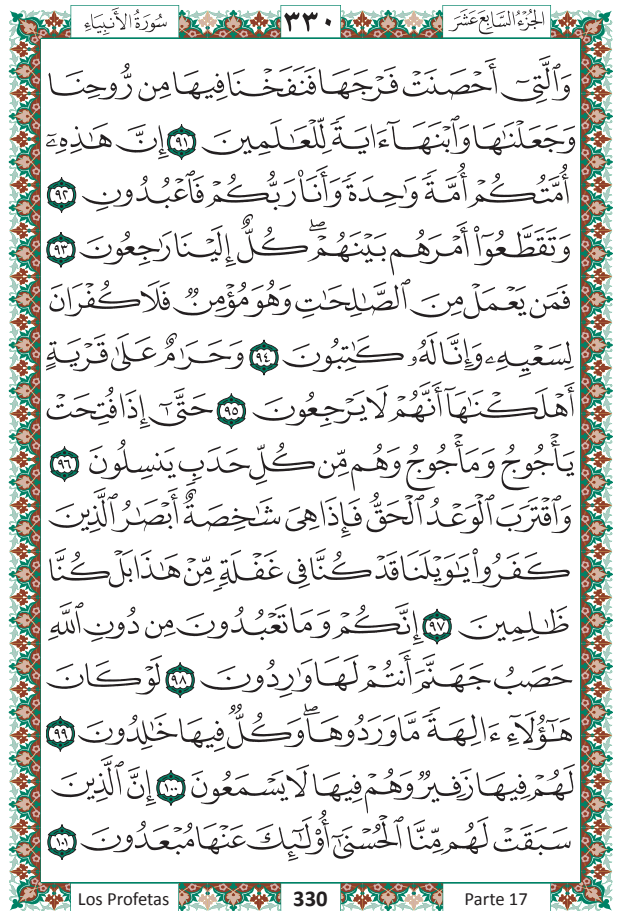 سُورَةُ الأَنبِيَاءِ ٣٣٠ الجُزْءُ السَّابِعَ عَشَرَ
وَٱلَّتِىٓ أَحْصَنَتْ فَرْجَهَا فَنَفَخْنَا فِيهَا مِن رُّوحِنَا
وَجَعَلْنَٰهَا وَٱبْنَهَآ ءَايَةً لِّلْعَٰلَمِينَ ٩١ إِنَّ هَٰذِهِۦٓ
أُمَّتُكُمْ أُمَّةً وَٰحِدَةً وَأَنَا۠ رَبُّكُمْ فَٱعْبُدُونِ ٩٢
وَتَقَطَّعُوٓا۟ أَمْرَهُم بَيْنَهُمْ ۖ كُلٌّ إِلَيْنَا رَٰجِعُونَ ٩٣
فَمَن يَعْمَلْ مِنَ ٱلصَّٰلِحَٰتِ وَهُوَ مُؤْمِنٌ فَلَا كُفْرَانَ
لِسَعْيِهِۦ وَإِنَّا لَهُۥ كَٰتِبُونَ ٩٤ وَحَرَٰمٌ عَلَىٰ قَرْيَةٍ
أَهْلَكْنَٰهَآ أَنَّهُمْ لَا يَرْجِعُونَ ٩٥ حَتَّىٰٓ إِذَا فُتِحَتْ
يَأْجُوجُ وَمَأْجُوجُ وَهُم مِّن كُلِّ حَدَبٍ يَنسِلُونَ ٩٦
وَٱقْتَرَبَ ٱلْوَعْدُ ٱلْحَقُّ فَإِذَا هِىَ شَٰخِصَةٌ أَبْصَٰرُ ٱلَّذِينَ
كَفَرُوا۟ يَٰوَيْلَنَا قَدْ كُنَّا فِى غَفْلَةٍ مِّنْ هَٰذَا بَلْ كُنَّا
ظَٰلِمِينَ ٩٧ إِنَّكُمْ وَمَا تَعْبُدُونَ مِن دُونِ ٱللَّهِ
حَصَبُ جَهَنَّمَ أَنتُمْ لَهَا وَٰرِدُونَ ٩٨ لَوْ كَانَ
هَٰٓؤُلَآءِ ءَالِهَةً مَّا وَرَدُوهَا ۖ وَكُلٌّ فِيهَا خَٰلِدُونَ ٩٩
لَهُمْ فِيهَا زَفِيرٌ وَهُمْ فِيهَا لَا يَسْمَعُونَ ١٠٠ إِنَّ ٱلَّذِينَ
سَبَقَتْ لَهُم مِّنَّا ٱلْحُسْنَىٰٓ أُو۟لَٰٓئِكَ عَنْهَا مُبْعَدُونَ ١٠١
Los Profetas 330 Parte 17